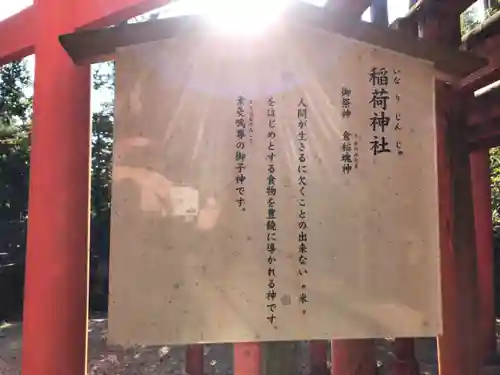 稲荷神社
いなりじんじゃ
御祭神 倉稲魂神
人間が生きるに欠くことの出来ない〝米〟
をはじめとする食物を豊饒に導かれる神です。
素戔嗚尊の御子神です。